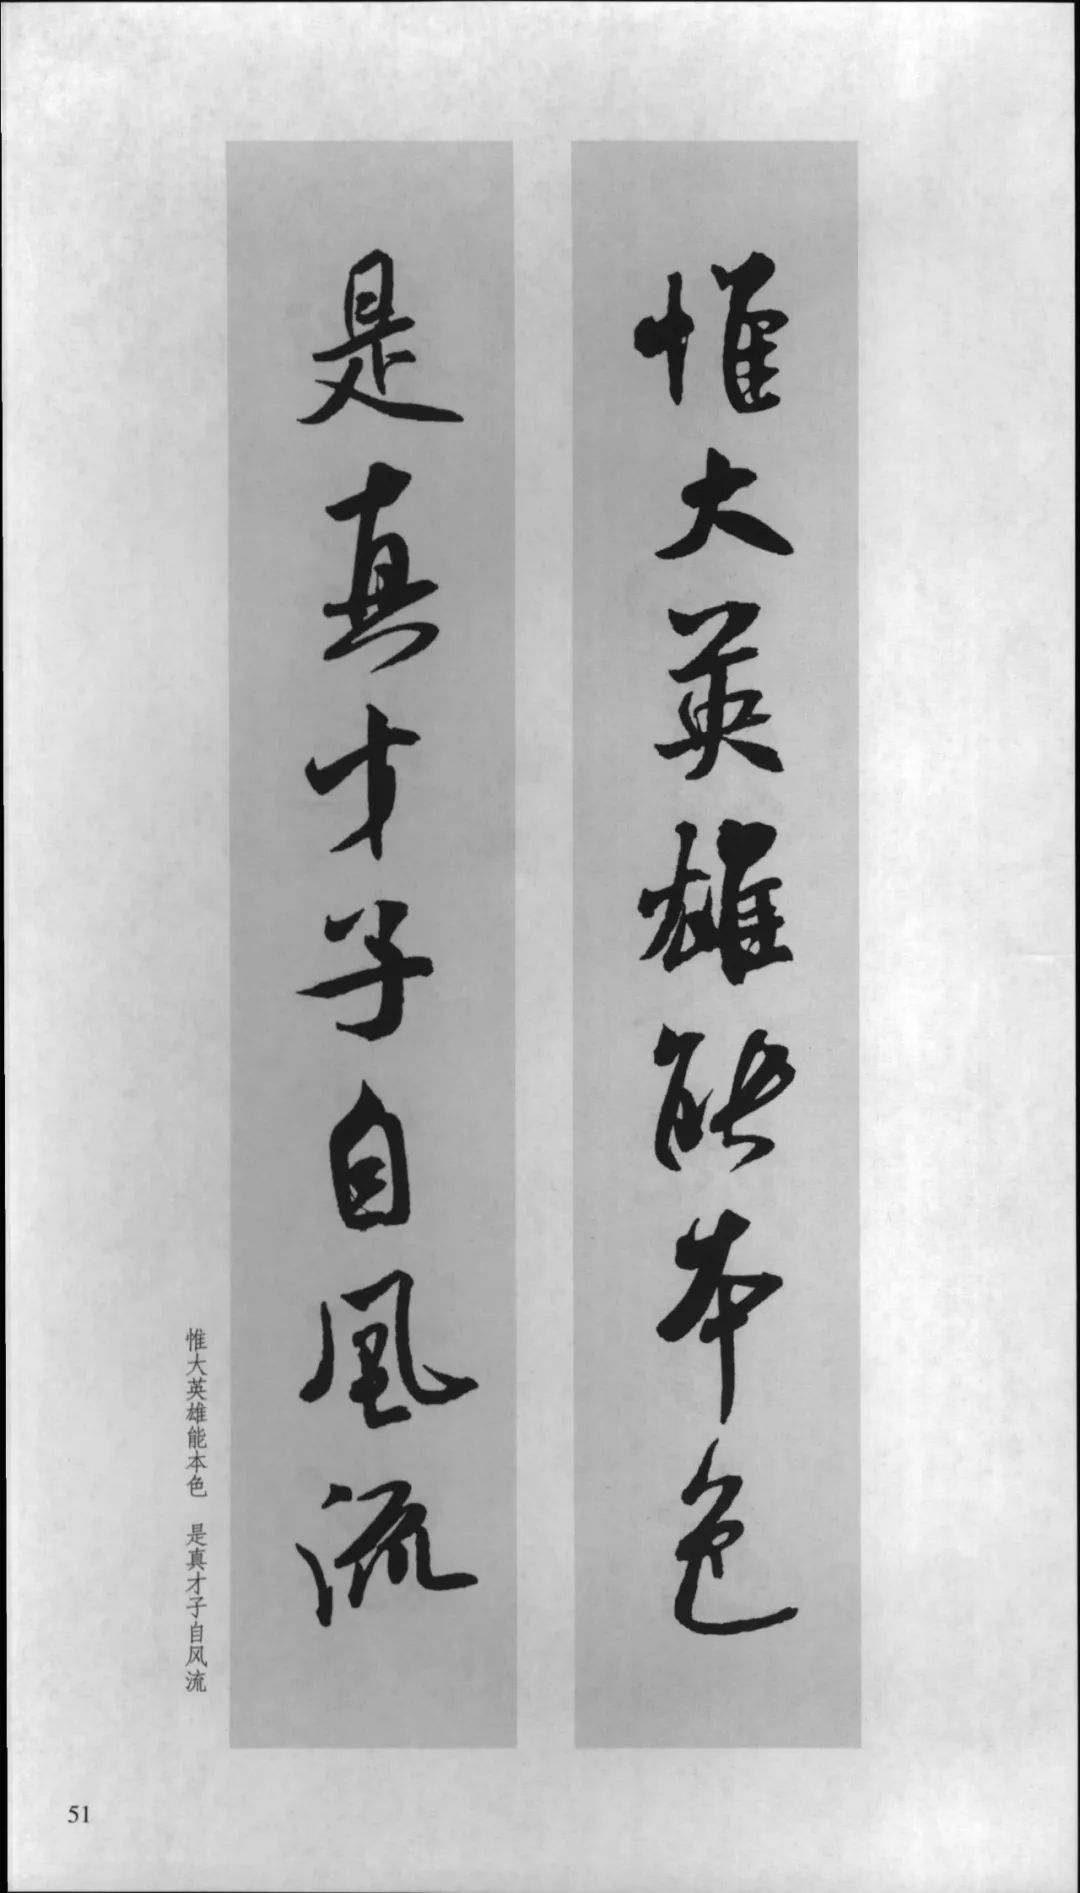 惟大英雄能本色
是真才子自風流
惟大英雄能本色　是真才子自风流
51